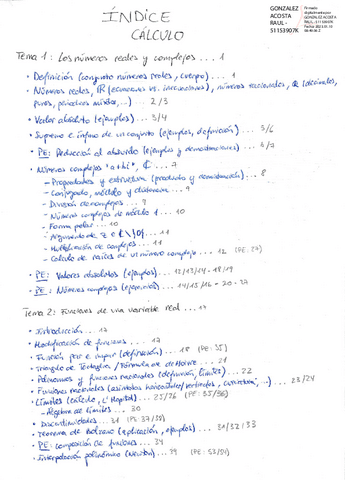 ÍNDICE
CÁLCULO
GONZALEZ
ACOSTA
RAUL -
51153907K
Tema 1: Los números reales y complejos ... 1
• Definición (conjunto números reales, cuerpo) ... 1
• Números reales, ℝ (ecuaciones vs. inecuaciones), números racionales, ℚ (decimales,
puros, periódicos mixtos, ...) ... 2/3
• Valor absoluto (ejemplos) ... 3/4
• Supremo e ínfimo de un conjunto (ejemplos, definición) ... 5/6
• PE: Reducción al absurdo (ejemplos y demostraciones) ... 6/7
• Números complejos "a+bi", ℂ ... 7
- Propiedades y estructura (producto y demostración) ... 8
- Conjugado, módulo y ... 9
- División de complejos ... 9
- Números complejos de módulo 1 ... 10
- Forma polar ... 10
- Argumento de z ∈ ℂ\{0} ... 11
- Multiplicación de complejos ... 11
- Cálculo de raíces de un número complejo ... 12 (PE: 27)
• PE: Valores absolutos (ejemplos) ... 12/13/14 - 18/19
• PE: Números complejos (ejercicios) ... 14/15/16 - 20 - 27
Tema 2: Funciones de una variable real ... 17
• Introducción ... 17
• Modificación de funciones ... 17
• Función par e impar (definición) ... 18 (PE: 35)
• Triángulo de Tartaglia / Fórmula de de Moivre ... 21
• Polinomios y funciones racionales (definición, límites) ... 22
• Funciones racionales (asíntotas horizontales/verticales, ...) ... 23/24
• Límites (cálculo, L'Hôpital) ... 25/26 (PE: 35/36)
- Álgebra de límites ... 30
• Discontinuidades ... 31 (PE: 37/38)
• Teorema de Bolzano (aplicación, ejemplos) ... 31/32/33
• PE: composición de funciones ... 34
• Interpolación polinómica (Newton) ... 39 (PE: 53/54)